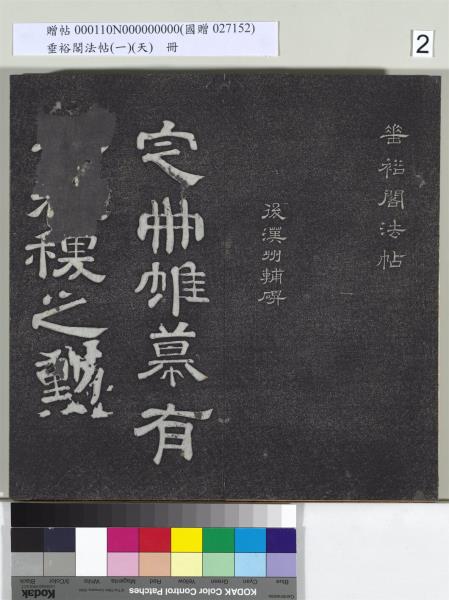 贈帖 000110N000000000(國贈 027152)
垂裕閣法帖(一)(天) 冊
2
垂裕閣法帖
後漢州輔碑
定冊帷幕有
稷之勳
Kodak
KODAK Color Control Patches
Blue
Cyan
Green
Yellow
Red
Magenta
White
3/Color
Black